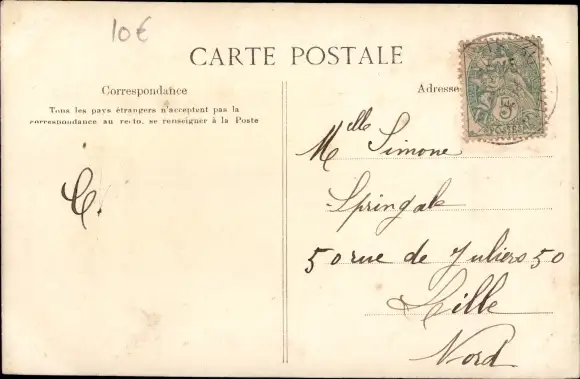 10€
CARTE POSTALE
Correspondance
Tous les pays étrangers n'acceptent pas la
correspondance au recto, se renseigner à la Poste
Adresse
Melle Simone
Springale
50 rue de Juliers 50
Lille
Nord
5
POSTES